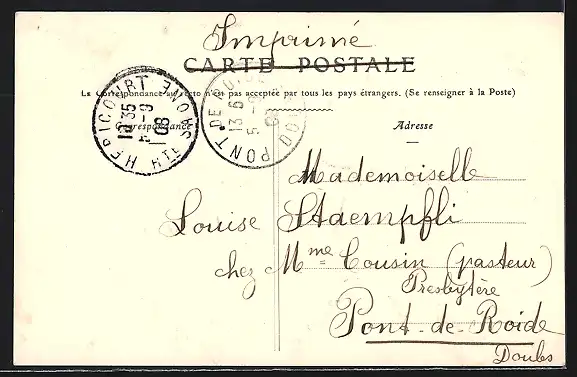 Imprimé
CARTE POSTALE
La Correspondance au recto n'est pas acceptée par tous les pays étrangers. (Se renseigner à la Poste)
HERICOURT
HTE SAONE
10 35
08
PONT-DE-
DOU
13
5
08
Correspondance
Adresse
Mademoiselle
Louise Staempfli
chez Mme Cousin (pasteur)
Presbytère
Pont-de-Roide
Doubs